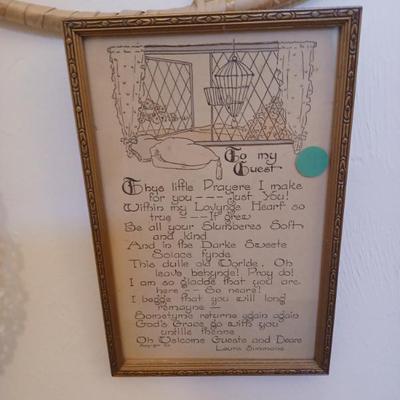 To my
Guest
Thys little Prayere I make
for you --- Just You!
Within my Lovynge Heart so
true -- It grew
Be all your Slumberes Soft
and kind
And in the Darke Sweete
Solace fynde
This dulle old Worlde, Oh
leave behynde! Pray do!
I am so gladde that you are
here -- So neare!
I begge that you will long
remayne --
Sometyme returne again again
God's Grace go with you
untille thenne
Oh Welcome Gueste and Deare
Laura Simmons